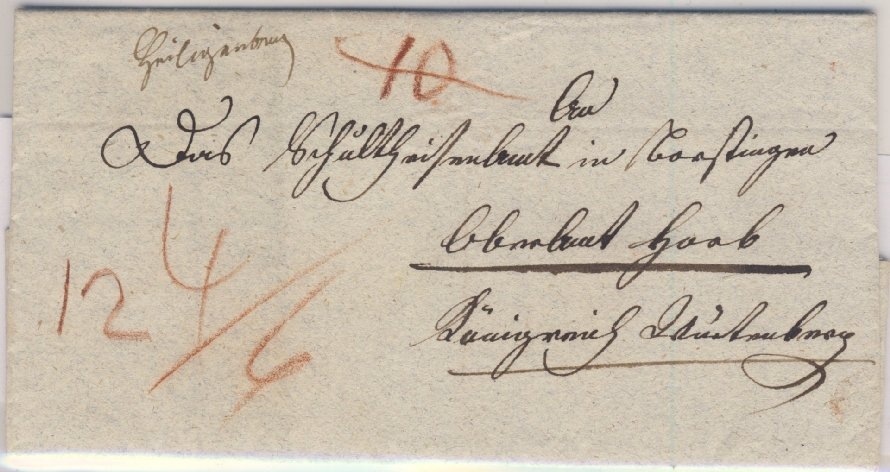 Heiligenberg
10
An
Das Schultheisenamt in Boestingen
Oberamt Horb
12 4/6
Königreich Würtenberg